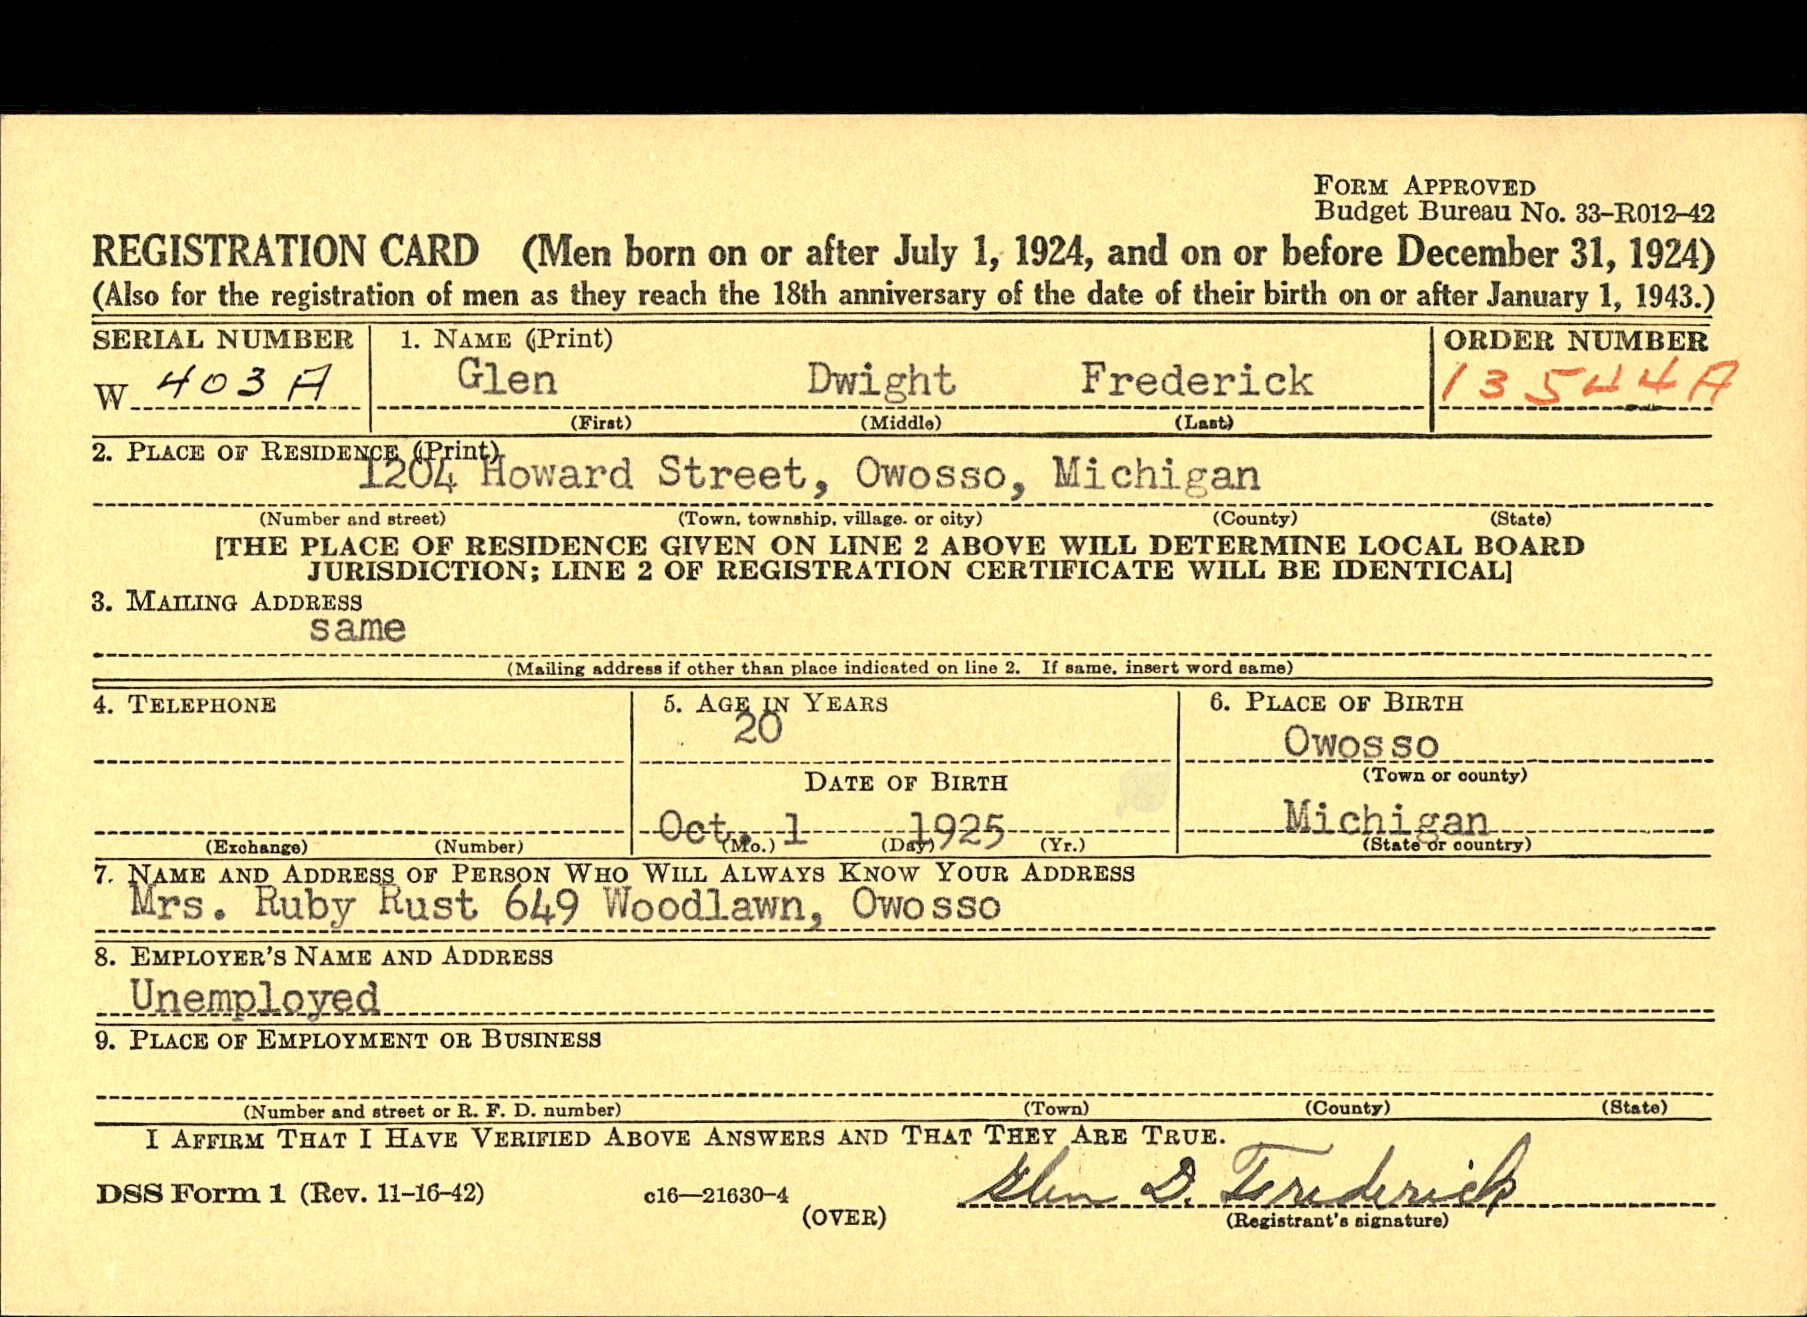 FORM APPROVED
Budget Bureau No. 33-R012-42
REGISTRATION CARD (Men born on or after July 1, 1924, and on or before December 31, 1924)
(Also for the registration of men as they reach the 18th anniversary of the date of their birth on or after January 1, 1943.)
SERIAL NUMBER 1. NAME (Print) ORDER NUMBER
W 403 A Glen Dwight Frederick 13544A
(First) (Middle) (Last)
2. PLACE OF RESIDENCE (Print)
1204 Howard Street, Owosso, Michigan
(Number and street) (Town, township, village, or city) (County) (State)
[THE PLACE OF RESIDENCE GIVEN ON LINE 2 ABOVE WILL DETERMINE LOCAL BOARD
JURISDICTION; LINE 2 OF REGISTRATION CERTIFICATE WILL BE IDENTICAL]
3. MAILING ADDRESS
same
(Mailing address if other than place indicated on line 2. If same, insert word same)
4. TELEPHONE 5. AGE IN YEARS 6. PLACE OF BIRTH
20 Owosso
(Town or county)
DATE OF BIRTH
Oct. 1 1925 Michigan
(Exchange) (Number) (Mo.) (Day) (Yr.) (State or country)
7. NAME AND ADDRESS OF PERSON WHO WILL ALWAYS KNOW YOUR ADDRESS
Mrs. Ruby Rust 649 Woodlawn, Owosso
8. EMPLOYER'S NAME AND ADDRESS
Unemployed
9. PLACE OF EMPLOYMENT OR BUSINESS
(Number and street or R. F. D. number) (Town) (County) (State)
I AFFIRM THAT I HAVE VERIFIED ABOVE ANSWERS AND THAT THEY ARE TRUE.
DSS Form 1 (Rev. 11-16-42) c16—21630-4 Glen D. Frederick
(OVER) (Registrant's signature)